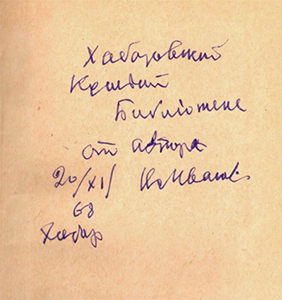 Хабаровской
Краевой
Библиотеке
от автора
20/XI/
68
Хабар